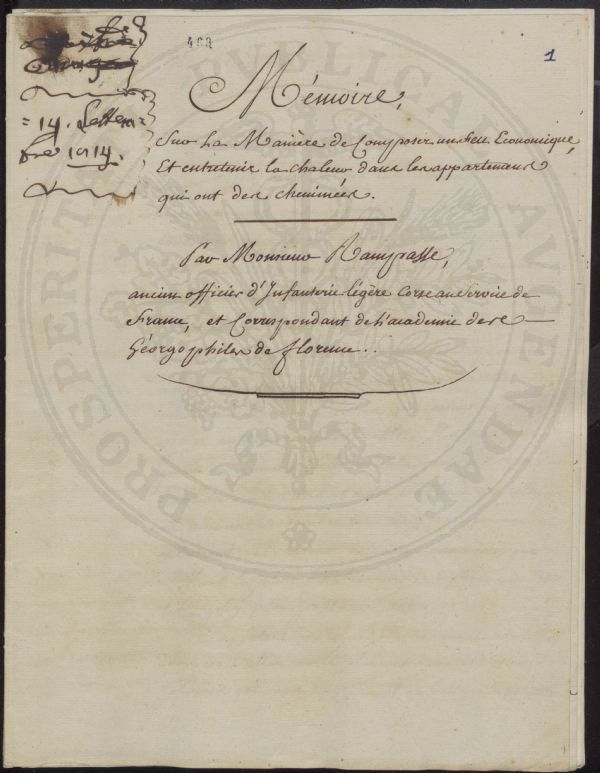 488
1
= 14. Letters =
Mémoire,
Sur La Maniere de Composer un feu Economique,
Et entretenir la chaleur dans les appartemens
qui ont des cheminées.
Par Monsieur Rampasse,
ancien officier d'Infanterie légère Corse au Service de
France, et Correspondant de L'académie des
Géorgophiles de florence..
PROSPERITATI PVBLICAE AVGENDAE